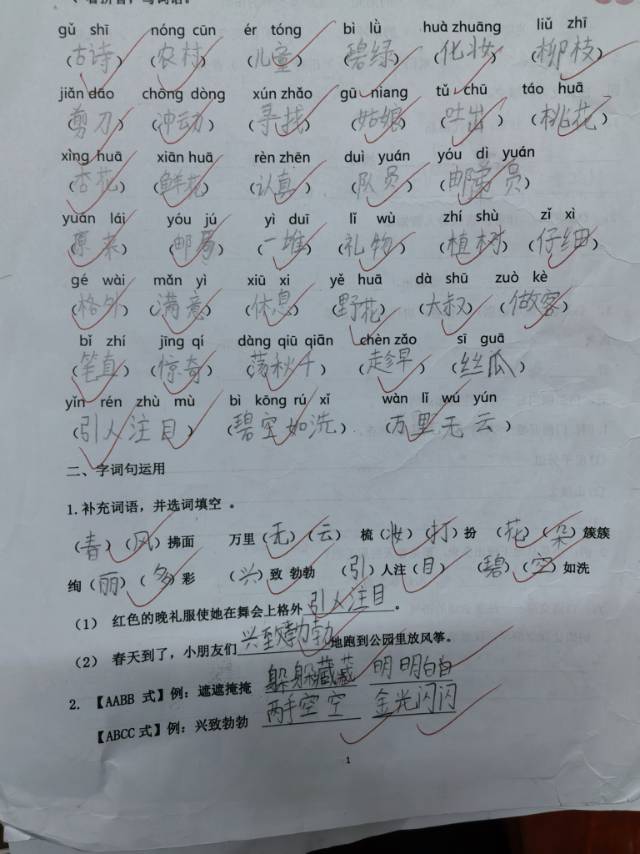 、看拼音，写词语。
gǔ shī nóng cūn ér tóng bì lǜ huà zhuāng liǔ zhī
（古诗）（农村）（儿童）（碧绿）（化妆）（柳枝）
jiǎn dāo chōng dòng xún zhǎo gū niang tǔ chū táo huā
（剪刀）（冲动）（寻找）（姑娘）（吐出）（桃花）
xìng huā xiān huā rèn zhēn duì yuán yóu dì yuán
（杏花）（鲜花）（认真）（队员）（邮递员）
yuán lái yóu jú yì duī lǐ wù zhí shù zǐ xì
（原来）（邮局）（一堆）（礼物）（植树）（仔细）
gé wài mǎn yì xiū xi yě huā dà shū zuò kè
（格外）（满意）（休息）（野花）（大叔）（做客）
bǐ zhí jīng qí dàng qiū qiān chèn zǎo sī guā
（笔直）（惊奇）（荡秋千）（趁早）（丝瓜）
yǐn rén zhù mù bì kōng rú xǐ wàn lǐ wú yún
（引人注目）（碧空如洗）（万里无云）
二、字词句运用
1.补充词语，并选词填空 。
（春）（风）拂面 万里（无）（云） 梳（妆）（打）扮 （花）（朵）簇簇
绚（丽）（多）彩 （兴）致 勃勃 （引）人注（目） （碧）（空）如洗
（1） 红色的晚礼服使她在舞会上格外 引人注目 。
（2） 春天到了，小朋友们 兴致勃勃 地跑到公园里放风筝。
2. 【AABB 式】例：遮遮掩掩 躲躲藏藏 明明白白
【ABCC 式】例：兴致勃勃 两手空空 金光闪闪
1